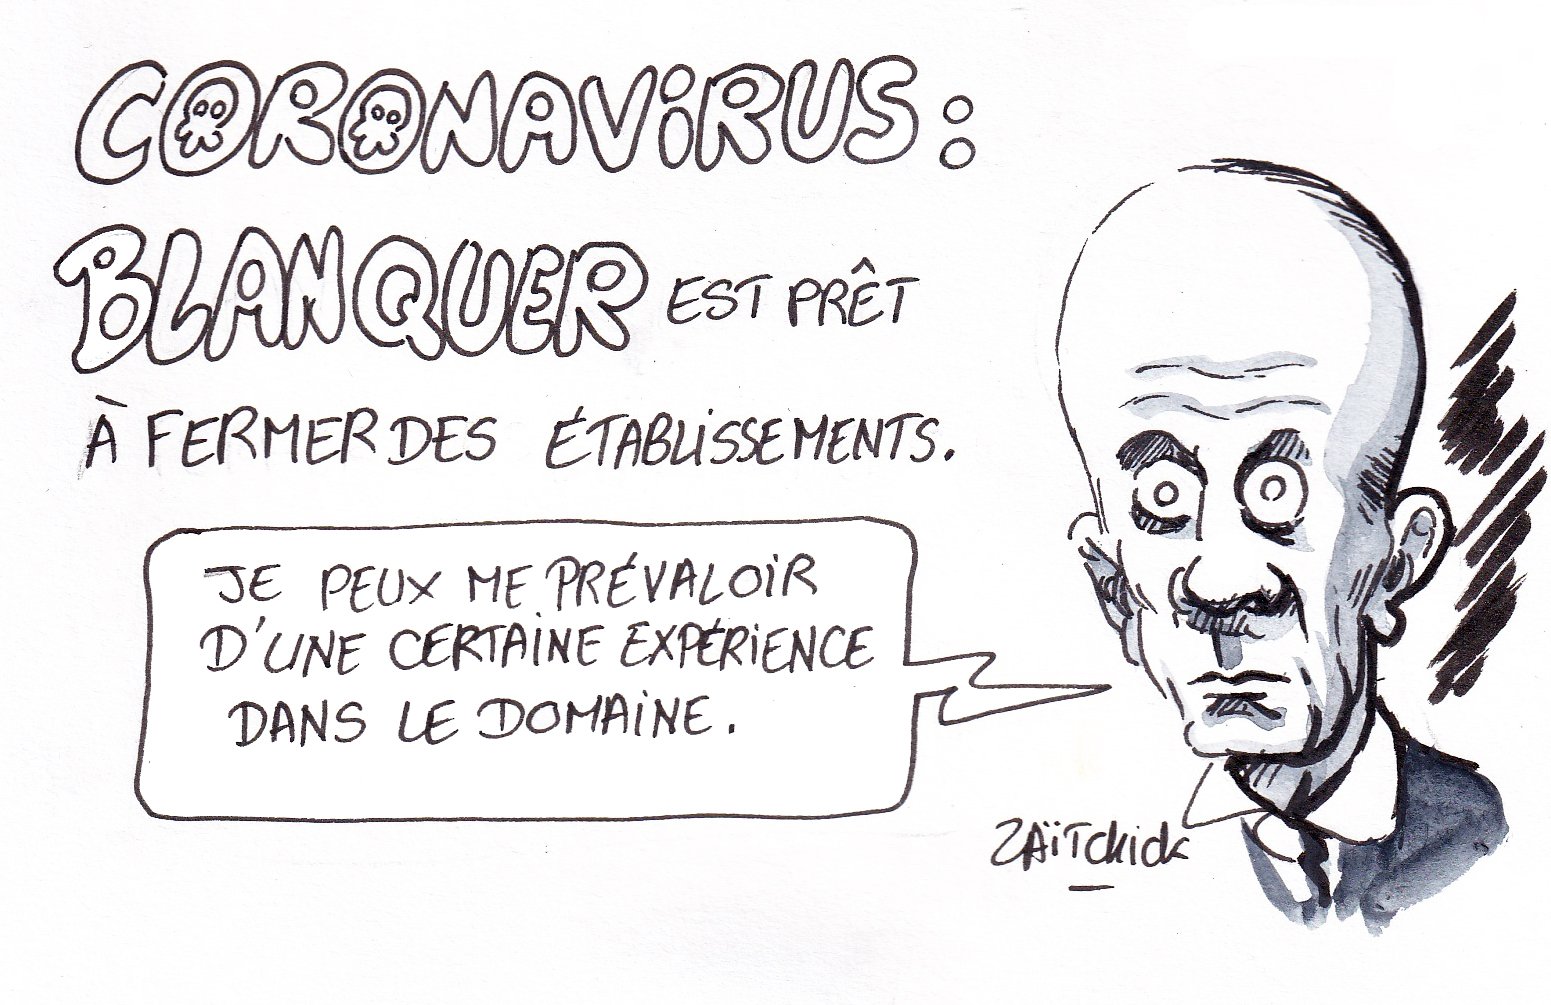 CORONAVIRUS :
BLANQUER EST PRÊT
À FERMER DES ÉTABLISSEMENTS.
JE PEUX ME PRÉVALOIR
D'UNE CERTAINE EXPÉRIENCE
DANS LE DOMAINE.
ZAÏTCHICK